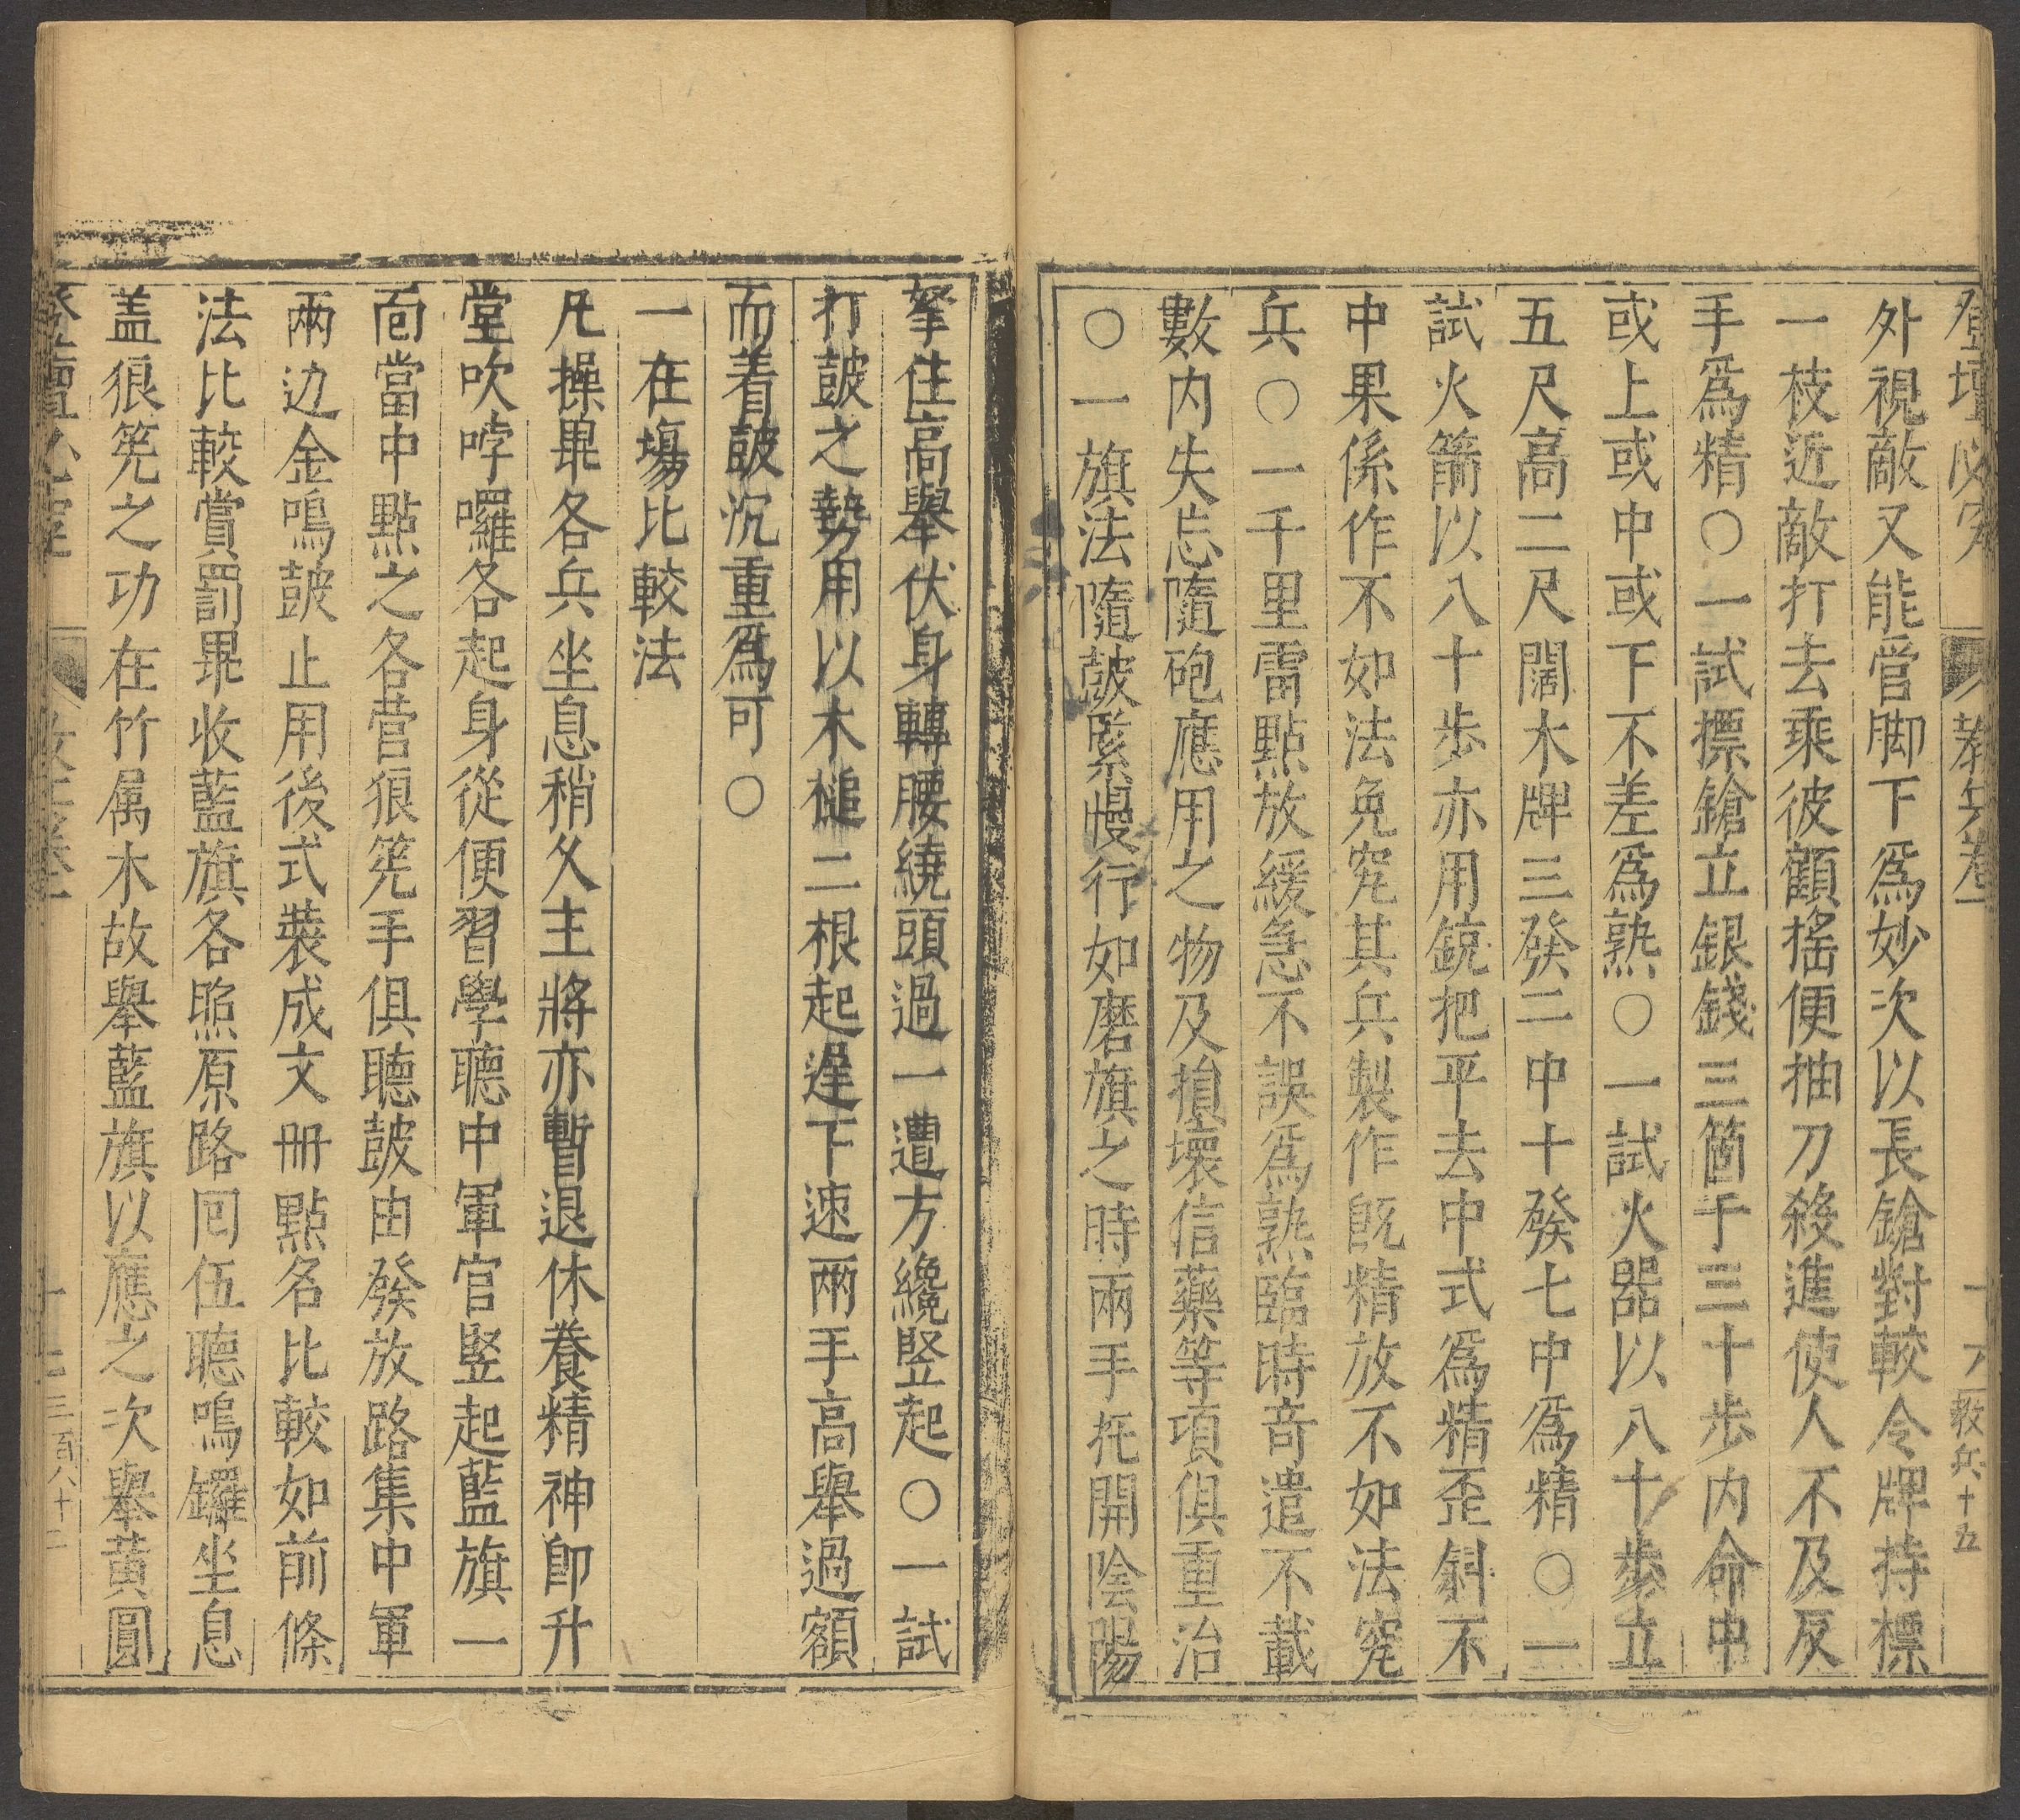 登壇必究 教兵卷一 教兵十五
外視敵又能管脚下爲妙次以長鎗對較令牌持標
一枝近敵打去乘彼顧搖便抽刀殺進使人不及反
手爲精○一試摽鎗立銀錢三箇于三十步内命中
或上或中或下不差爲熟○一試火器以八十步立
五尺高二尺闊木牌三發二中十發七中爲精○一
試火箭以八十步亦用銃把平去中式爲精歪斜不
中果係作不如法免究其兵製作旣精放不如法究
兵○一千里雷點放緩急不誤爲熟臨時竒遣不載
數内失忘隨砲應用之物及損壞信藥等項俱重治
○一旗法隨皷緊慢行如磨旗之時兩手托開陰陽
拏住高舉伏身轉腰繞頭過一遭方纔竪起○一試
打皷之勢用以木槌二根起遅下速兩手高舉過額
而着皷沉重爲可○
一在塲比較法
凡操畢各兵坐息稍久主將亦暫退休養精神卽升
堂吹哱囉各起身從便習學聽中軍官竪起藍旗一
靣當中點之各营狼筅手俱聽皷由發放路集中軍
兩边金鳴皷止用後式裝成文册點名比較如前條
法比較賞罰畢收藍旗各照原路囘伍聽鳴鑼坐息
盖狼筅之功在竹属木故舉藍旗以應之次舉黃圓
三百八十二